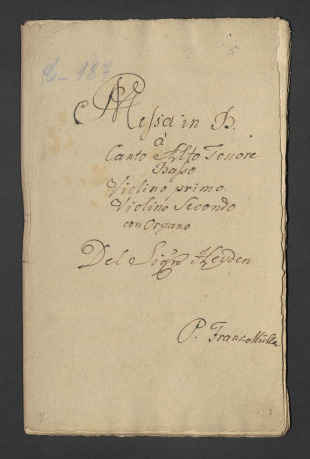 187
Messa in B.
à
Canto Alto Tenore
Basso
Violino primo
Violino Secondo
con Organo
Del Sigre Heyden
P. Franc. Müller